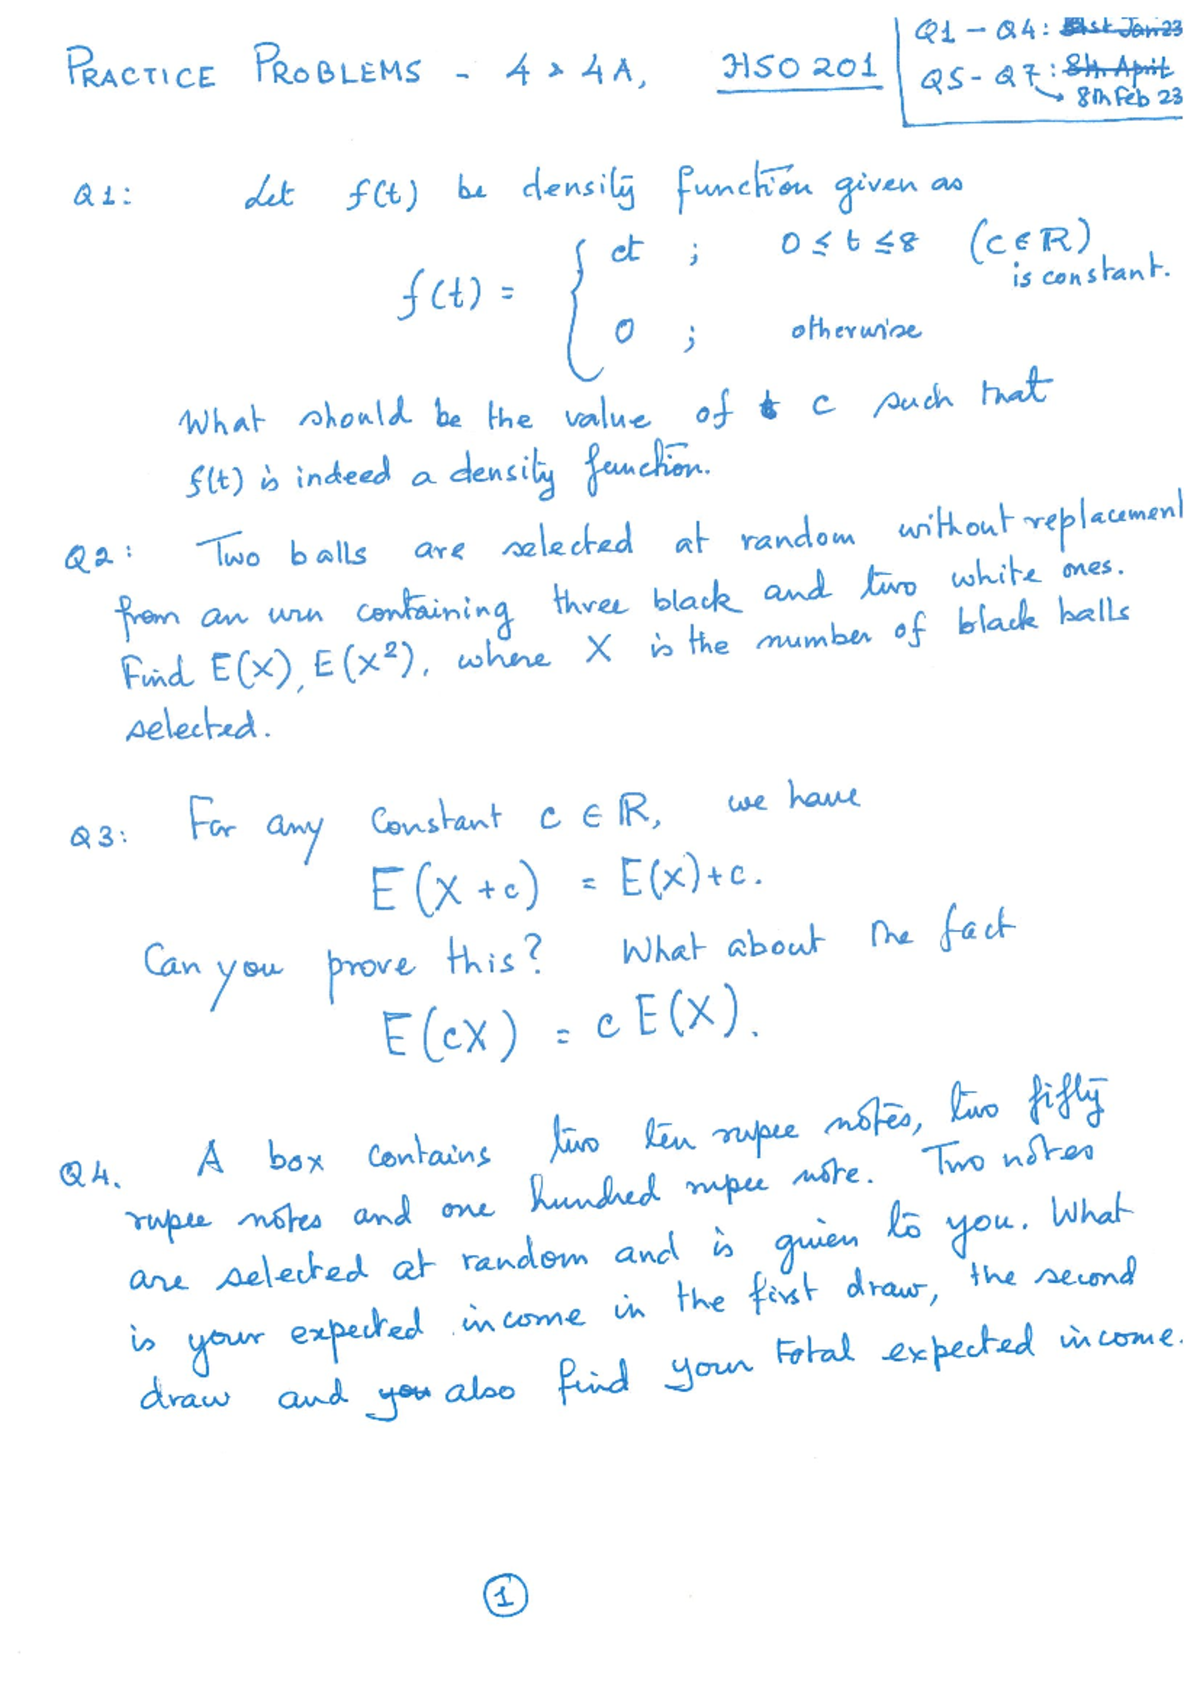 PRACTICE PROBLEMS - 4 & 4A, HSO 201
Q1 - Q4: 31st Jan 23
Q5 - Q7: 8th April
8th Feb 23
Q1: Let f(t) be density function given as
f(t) = { ct ; 0 ≤ t ≤ 8 (c ∈ ℝ)
is constant.
0 ; otherwise
What should be the value of c such that
f(t) is indeed a density function.
Q2: Two balls are selected at random without replacement
from an urn containing three black and two white ones.
Find E(X), E(X²), where X is the number of black balls
selected.
Q3: For any constant c ∈ ℝ, we have
E(X + c) = E(X) + c.
Can you prove this? What about the fact
E(cX) = c E(X).
Q4. A box contains two ten rupee notes, two fifty
rupee notes and one hundred rupee note. Two notes
are selected at random and is given to you. What
is your expected income in the first draw, the second
draw and you also find your total expected income.
1